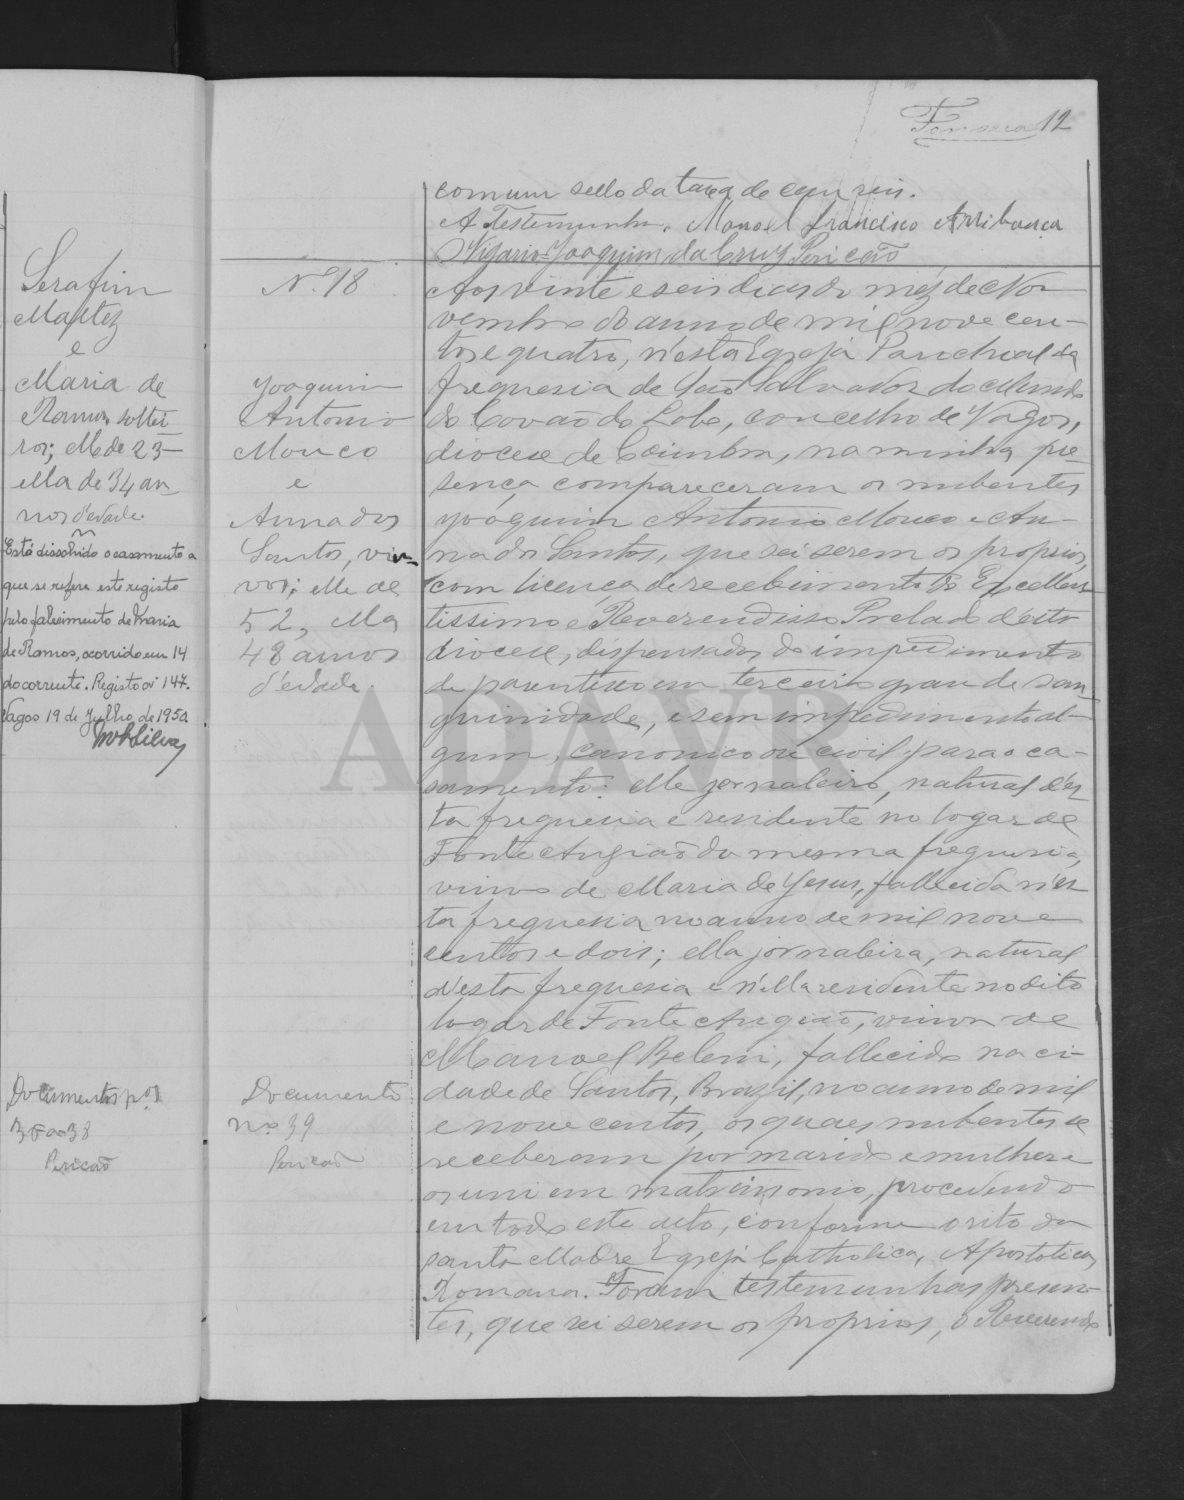 Fonseca 12
com um sello da taxa de cem reis.
A Testemunha. Manoel Francisco Arribança
O Vigario Joaquim da Cruz Pericão
Serafim
Martez
e
Maria de
Ramos, soltei
ros; elle de 23
ella de 34 an
nos d'edade
Está dissolvido o casamento a
que se refere este registo
pelo falecimento de Maria
de Ramos, ocorrido em 14
do corrente. Registo nº 147.
Vagos 19 de Julho de 1950
Documentos nos
a 38
Pericão
Nº 18
Joaquim
Antonio
Mouco
e
Anna dos
Santos, viu
vos; elle de
52, ella
48 annos
d'edade.
Documento
nº 39
Pericão
Aos vinte e seis dias do mez de No
vembro do anno de mil nove cen-
tos e quatro, n'esta Egreja Parochial da
freguesia de São Salvador do Mundo
do Covão do Lobo, concelho de Vagos,
diocese de Coimbra, na minha pre-
sença compareceram os nubentes
Joaquim Antonio Mouco e An-
na dos Santos, que sei serem os proprios,
com licença de recebimento do Excellen-
tissimo e Reverendissº Prelado d'esta
diocese, dispensados do impedimento
de parentesco em terceiro grau de san-
guinidade, e sem impedimento al-
gum, canonico ou civil para o ca-
samento: elle jornaleiro, natural d'es-
ta freguesia e residente no logar de
Fonte Angião da mesma freguesia,
viuvo de Maria de Jesus, fallecida n'es
ta freguesia no anno de mil nove
centos e dois; ella jornaleira, natural
d'esta freguesia e n'ella residente no dito
logar de Fonte Angião, viuva de
Manoel Belem, fallecido na ci-
dade de Santos, Brazil, no anno de mil
e nove centos, os quaes nubentes se
receberam por marido e mulher e
os uni em matrimonio, procedendo
em todo este acto, conforme o rito da
santa Madre Egreja Catholica, Apostolica
Romana. Foram testemunhas presen-
tes, que sei serem os proprios, o Reverendo
ADAVR